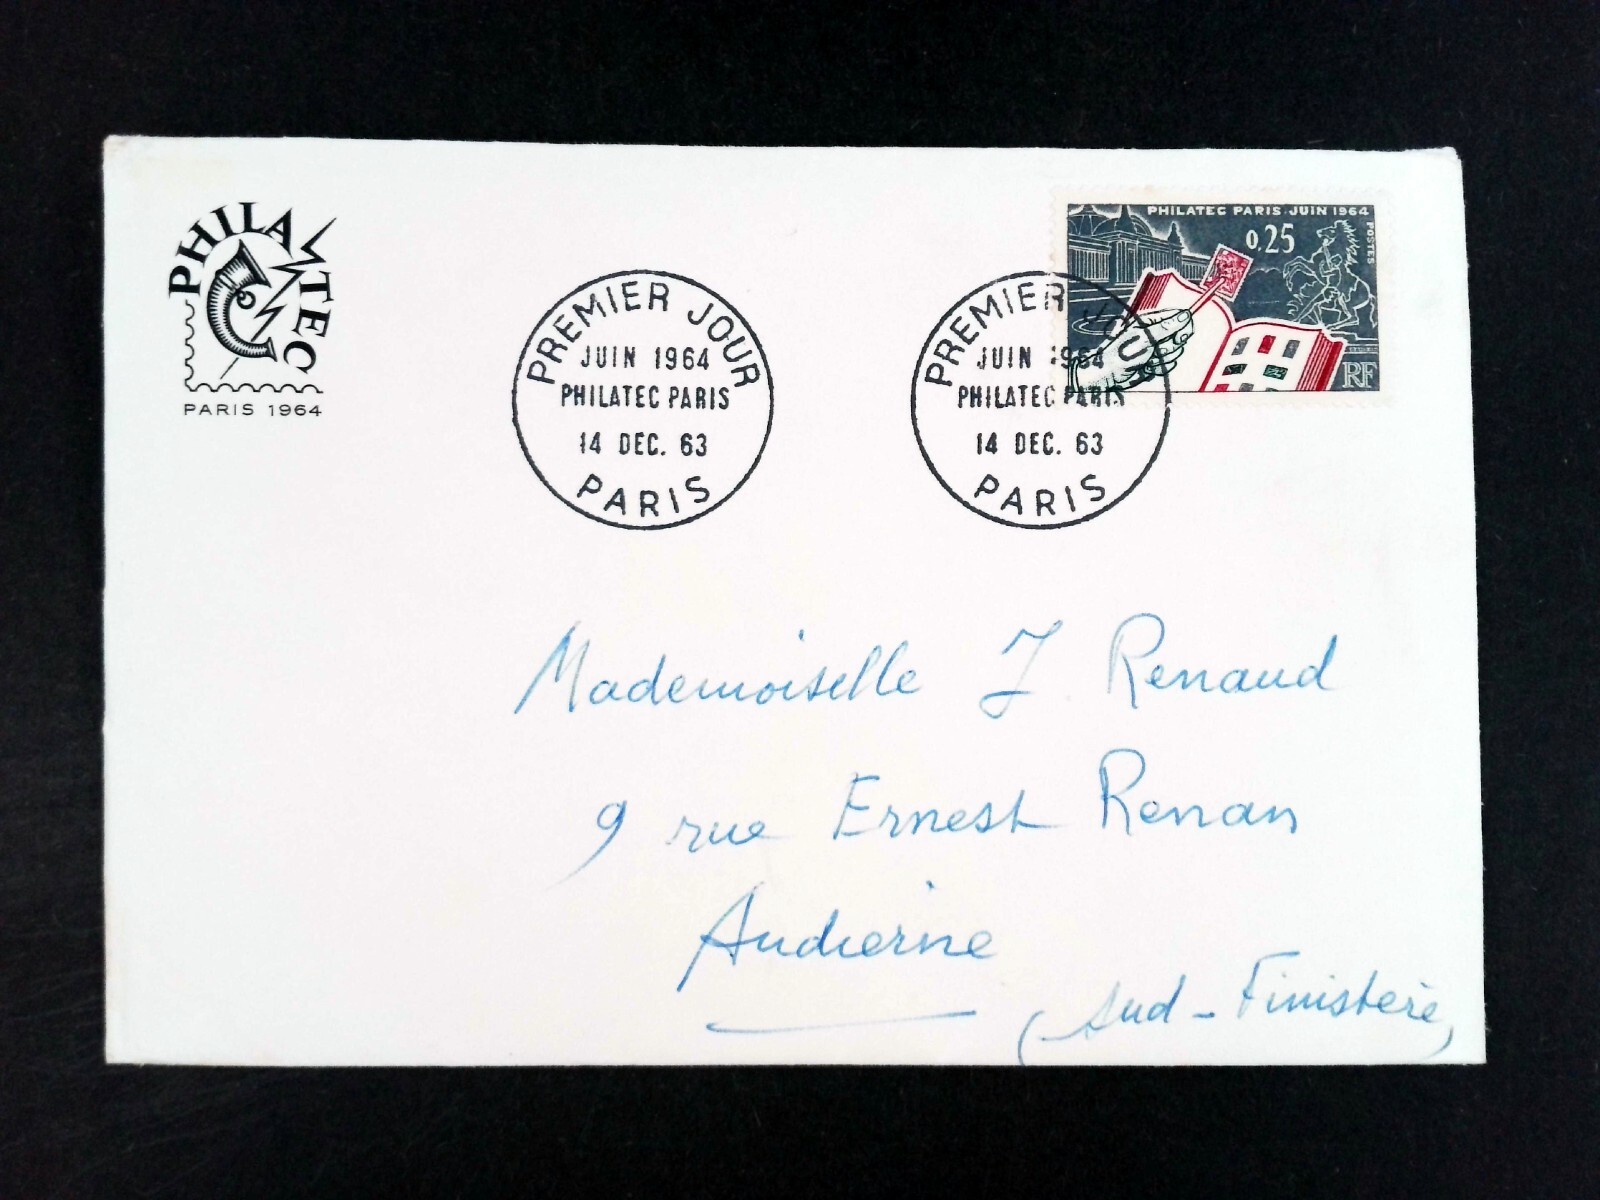 PHILATEC
PARIS 1964
PREMIER JOUR
JUIN 1964
PHILATEC PARIS
14 DEC. 63
PARIS
PREMIER JOUR
JUIN 1964
PHILATEC PARIS
14 DEC. 63
PARIS
PHILATEC PARIS JUIN 1964
0,25
POSTES
RF
Mademoiselle J. Renaud
9 rue Ernest Renan
Audierne
(Sud-Finistère)